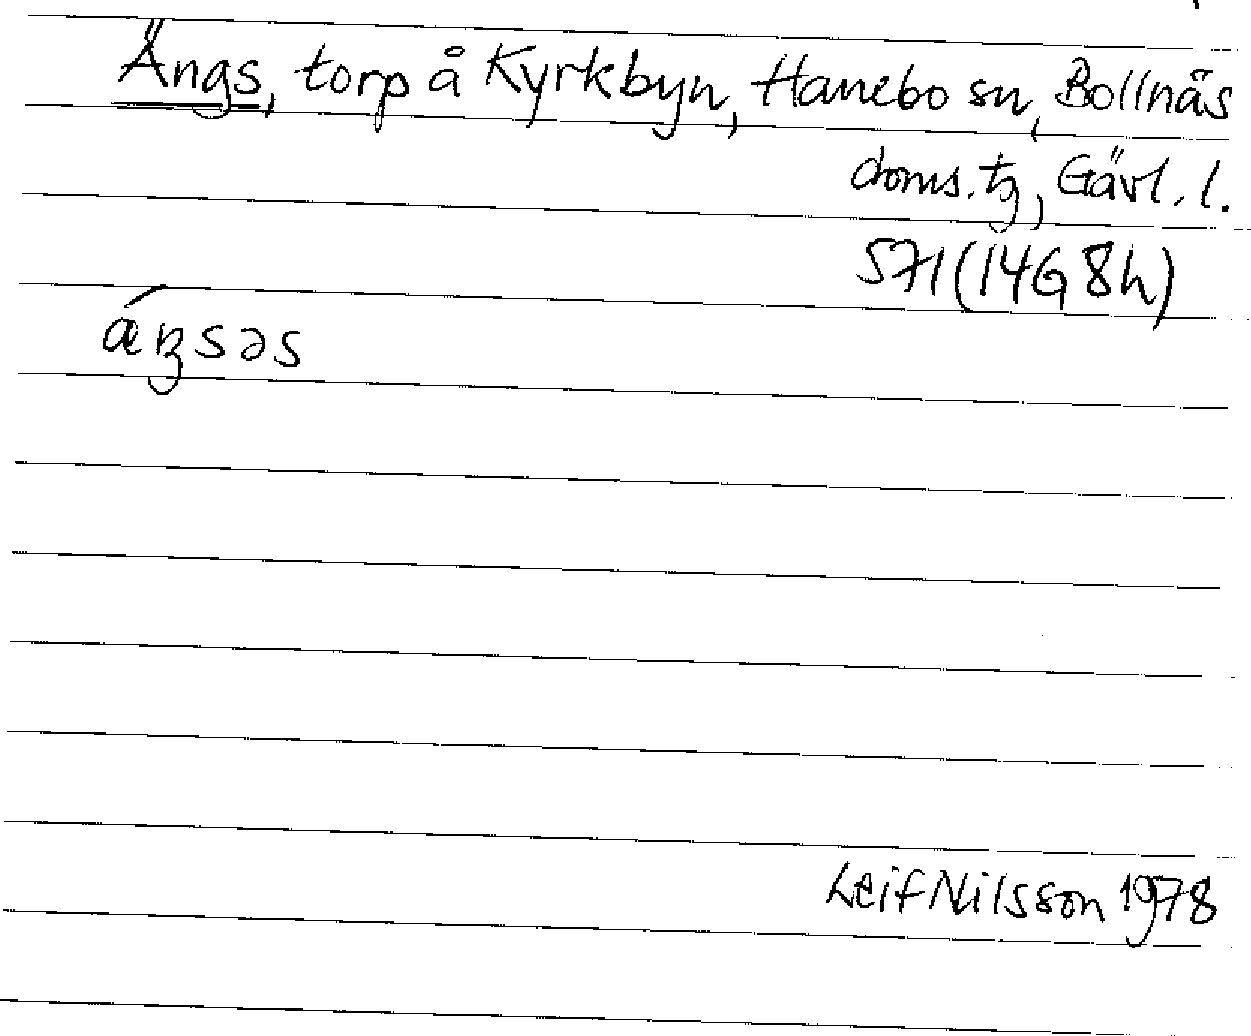 Ängs, torp å Kyrkbyn, Hanebo sn, Bollnäs
doms. tg, Gävl. l.
571 (14G 8h)
Leif Nilsson 1978